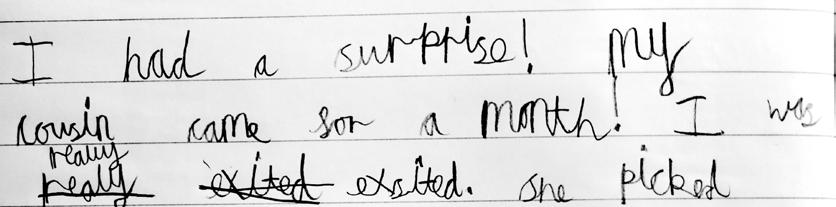 I had a surprise! My
cousin came for a month! I was
really
really exited exsited. she picked